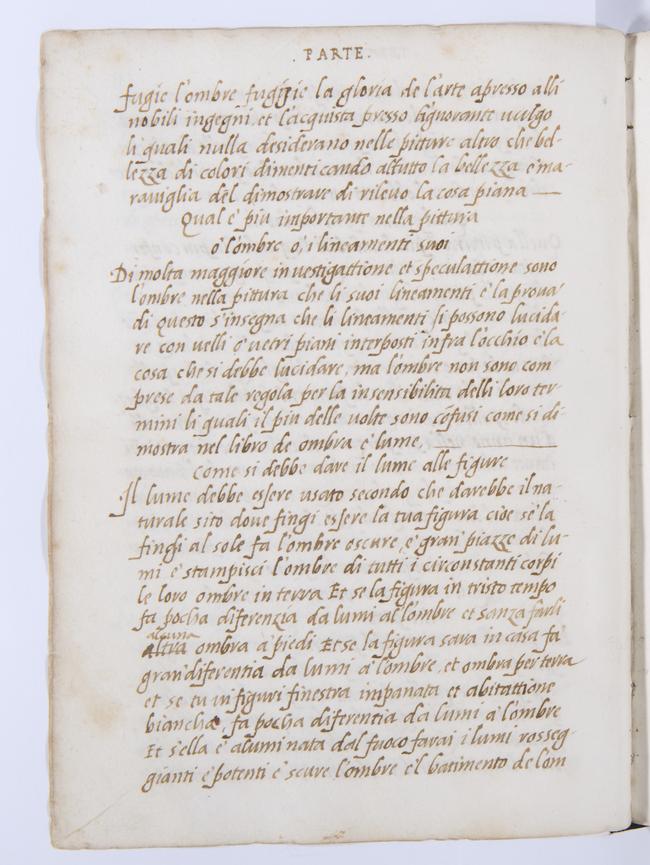 . PARTE.
fugie l'ombre fuggie la gloria de l'arte apresso alli
nobili ingegni, et l'acquista presso l'ignorante vcolgo
li quali nulla desiderano nelle pitture altro che bel-
lezza di colori dimenticando altutto la bellezza e ma-
raviglia del dimostrare di rilevo la cosa piana —
Qual'è piu importante nella pittura
ò l'ombre ò, i lineamenti suoi
Di molta maggiore investigattione et speculattione sono
l'ombre nella pittura che li suoi lineamenti e la prova'
di questo s'insegna che li lineamenti si possono lucida-
re con velli e vetri piani interposti infra l'occhio e la
cosa che si debbe lucidare, ma l'ombre non sono com
prese da tale regola per la insensibilita delli loro ter-
mini li quali il piu delle volte sono cofusi come si di-
mostra nel libro de ombra e lume.
come si debbe dare il lume alle figure
Il lume debbe essere usato secondo che darebbe il na-
turale sito dove fingi essere la tua figura cioe se la
finghi al sole fa l'ombre oscure, e gran piazze di lu-
mi e stampisci l'ombre di tutti i circonstanti corpi
le loro ombre in terra Et se la figura in tristo tempo
fa pocha diferenzia da lumi al l'ombre et sanza fardi
alcuna
altra ombra a piedi Et se la figura sara in casa fa
gran diferentia da lumi a l'ombre, et ombra per terra
et se tu vi figuri finestra impanata et abitattione
biancha, fa pocha diferentia da lumi a l'ombre
Et s'ella è aluminata dal fuoco farai i lumi rosseg-
gianti e potenti e scure l'ombre e'l batimento de l'om